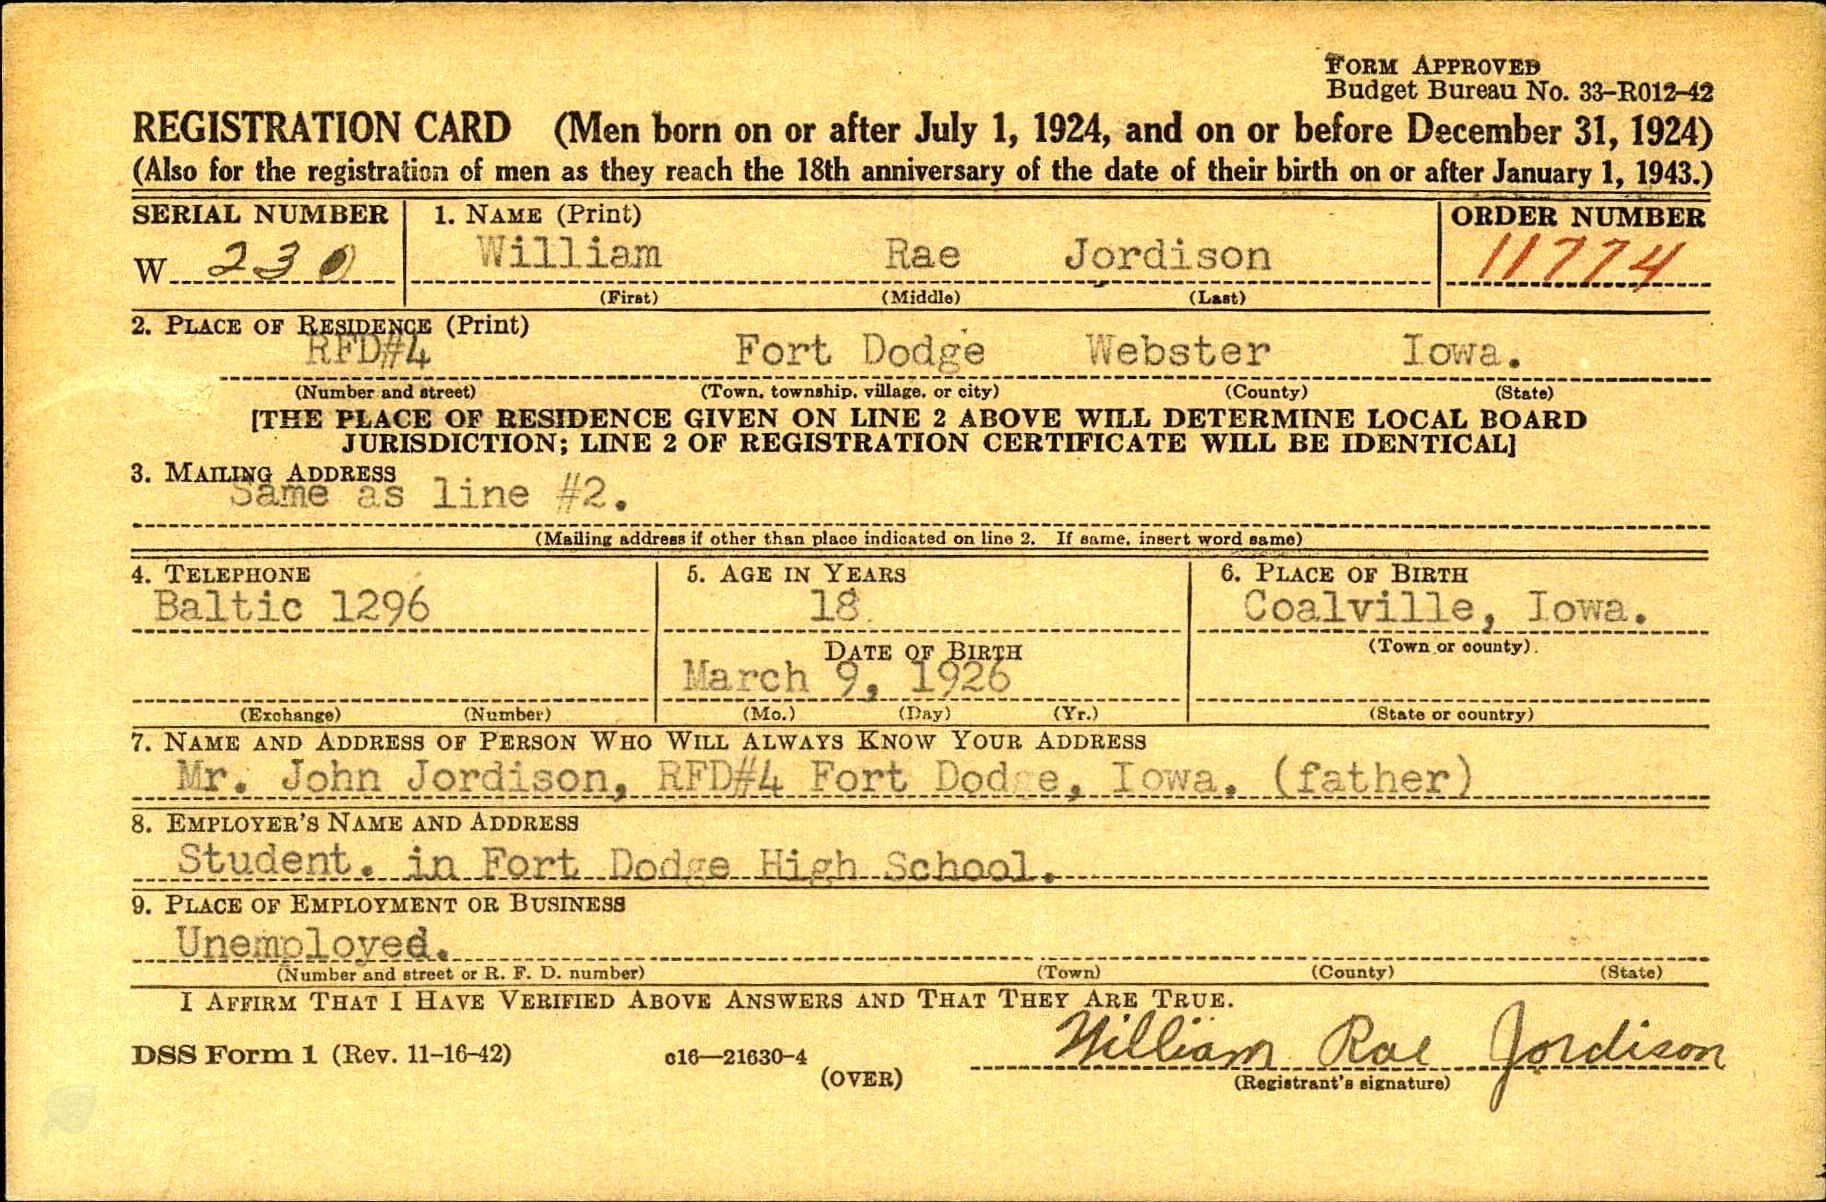 FORM APPROVED
Budget Bureau No. 33–R012–42
REGISTRATION CARD (Men born on or after July 1, 1924, and on or before December 31, 1924)
(Also for the registration of men as they reach the 18th anniversary of the date of their birth on or after January 1, 1943.)
SERIAL NUMBER 1. NAME (Print) ORDER NUMBER
W 230 William Rae Jordison 11774
(First) (Middle) (Last)
2. PLACE OF RESIDENCE (Print)
RFD#4 Fort Dodge Webster Iowa.
(Number and street) (Town, township, village, or city) (County) (State)
[THE PLACE OF RESIDENCE GIVEN ON LINE 2 ABOVE WILL DETERMINE LOCAL BOARD
JURISDICTION; LINE 2 OF REGISTRATION CERTIFICATE WILL BE IDENTICAL]
3. MAILING ADDRESS
Same as line #2.
(Mailing address if other than place indicated on line 2. If same, insert word same)
4. TELEPHONE 5. AGE IN YEARS 6. PLACE OF BIRTH
Baltic 1296 18 Coalville, Iowa.
DATE OF BIRTH (Town or county)
March 9, 1926
(Exchange) (Number) (Mo.) (Day) (Yr.) (State or country)
7. NAME AND ADDRESS OF PERSON WHO WILL ALWAYS KNOW YOUR ADDRESS
Mr. John Jordison, RFD#4 Fort Dodge, Iowa. (father)
8. EMPLOYER'S NAME AND ADDRESS
Student. in Fort Dodge High School.
9. PLACE OF EMPLOYMENT OR BUSINESS
Unemployed.
(Number and street or R. F. D. number) (Town) (County) (State)
I AFFIRM THAT I HAVE VERIFIED ABOVE ANSWERS AND THAT THEY ARE TRUE.
DSS Form 1 (Rev. 11–16–42) c16—21630-4 William Rae Jordison
(OVER) (Registrant's signature)